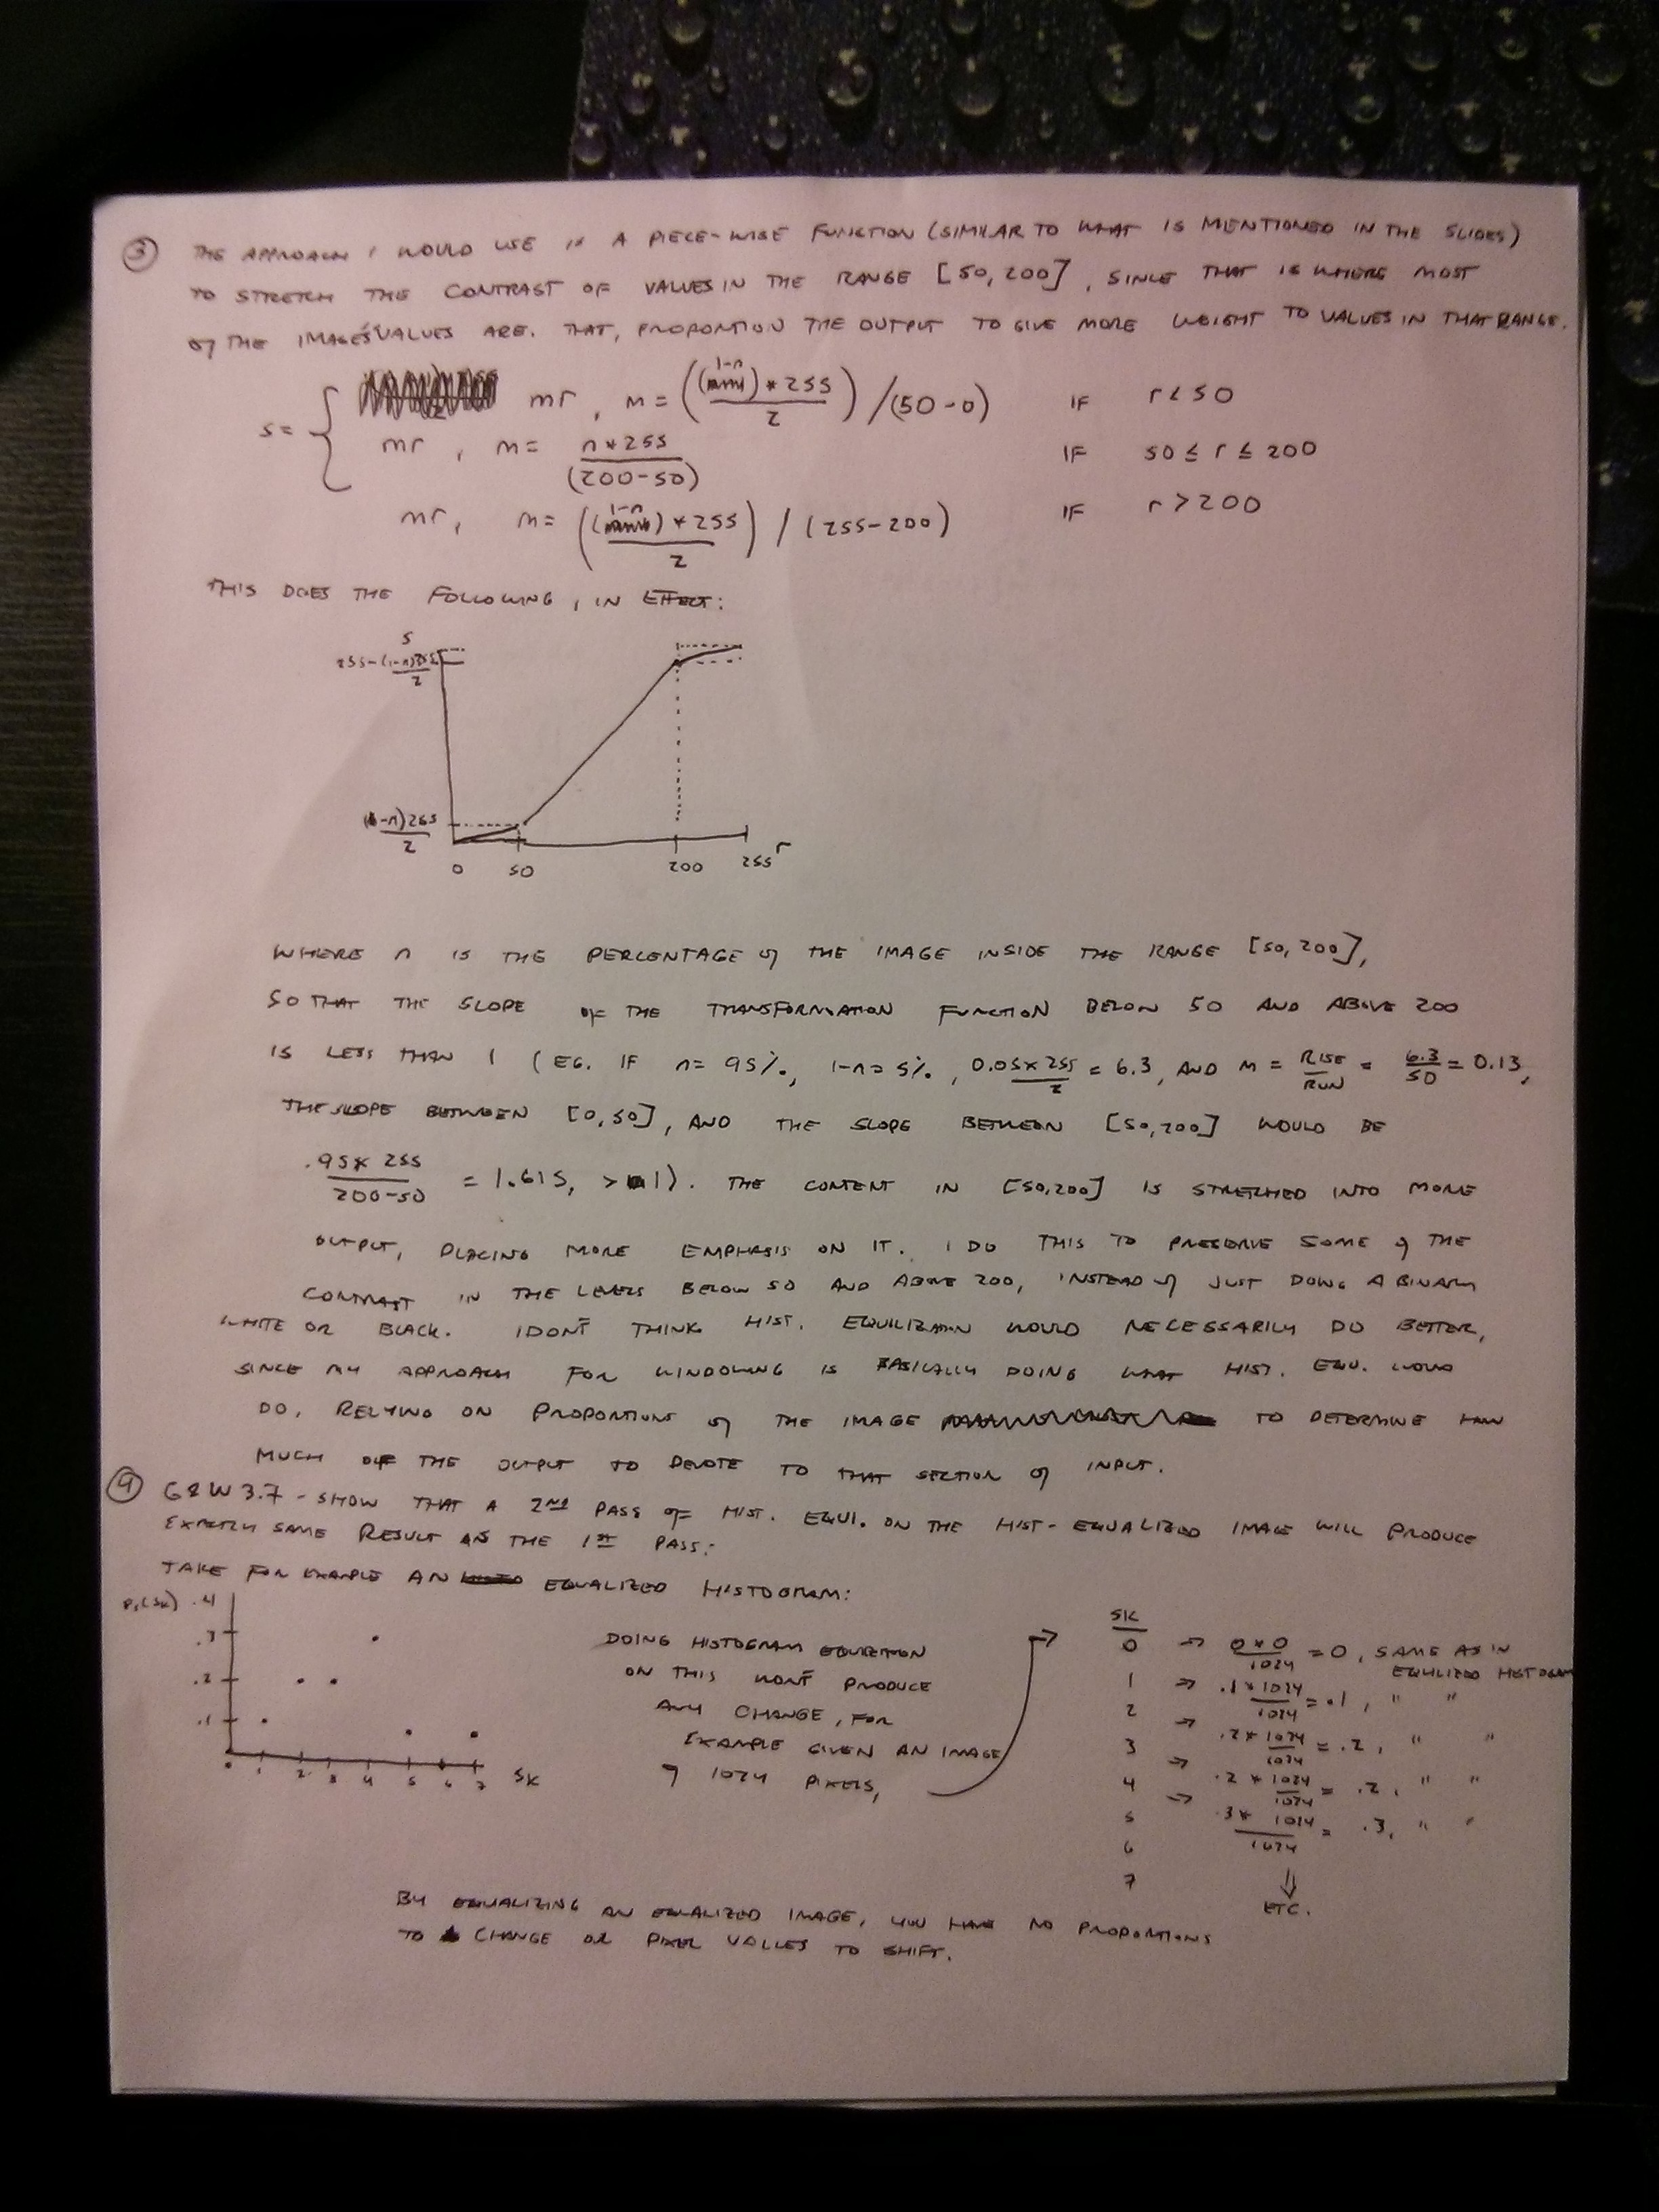 ③ THE APPROACH I WOULD USE IS A PIECE-WISE FUNCTION (SIMILAR TO WHAT IS MENTIONED IN THE SLIDES)
TO STRETCH THE CONTRAST OF VALUES IN THE RANGE [50, 200], SINCE THAT IS WHERE MOST
OF THE IMAGES' VALUES ARE. THAT, PROPORTION THE OUTPUT TO GIVE MORE WEIGHT TO VALUES IN THAT RANGE.
s = { mr, m = ((1-n) * 255 / 2) / (50-0) IF r < 50
mr, m = n * 255 / (200-50) IF 50 ≤ r ≤ 200
mr, m = ((1-n) * 255 / 2) / (255-200) IF r > 200
THIS DOES THE FOLLOWING, IN EFFECT:
s
255-(1-n)255/2
(1-n)255/2
0 50 200 255 r
WHERE n IS THE PERCENTAGE OF THE IMAGE INSIDE THE RANGE [50, 200],
SO THAT THE SLOPE OF THE TRANSFORMATION FUNCTION BELOW 50 AND ABOVE 200
IS LESS THAN 1 (EG. IF n = 95%, 1-n = 5%, 0.05 x 255 / 2 = 6.3, AND m = RISE/RUN = 6.3/50 = 0.13,
THE SLOPE BETWEEN [0, 50], AND THE SLOPE BETWEEN [50, 200] WOULD BE
.95 x 255 / 200-50 = 1.615, > 1). THE CONTENT IN [50,200] IS STRETCHED INTO MORE
OUTPUT, PLACING MORE EMPHASIS ON IT. I DO THIS TO PRESERVE SOME OF THE
CONTRAST IN THE LEVELS BELOW 50 AND ABOVE 200, INSTEAD OF JUST DOING A BINARY
WHITE OR BLACK. I DON'T THINK HIST. EQUILIZATION WOULD NECESSARILY DO BETTER,
SINCE MY APPROACH FOR WINDOWING IS BASICALLY DOING WHAT HIST. EQU. WOULD
DO, RELYING ON PROPORTIONS OF THE IMAGE TO DETERMINE HOW
MUCH OF THE OUTPUT TO DEVOTE TO THAT SECTION OF INPUT.
④ G&W 3.7 - SHOW THAT A 2ND PASS OF HIST. EQUI. ON THE HIST-EQUALIZED IMAGE WILL PRODUCE
EXACTLY SAME RESULT AS THE 1ST PASS:
TAKE FOR EXAMPLE AN EQUALIZED HISTOGRAM:
Ps(Sk) .4
.3
.2
.1
0 1 2 3 4 5 6 7 Sk
DOING HISTOGRAM EQUIZATION
ON THIS WON'T PRODUCE
ANY CHANGE, FOR
EXAMPLE GIVEN AN IMAGE
OF 1024 PIXELS,
SK
0 → 0 * 0 / 1024 = 0, SAME AS IN
EQUILIZED HISTOGRAM
1 → .1 * 1024 / 1024 = .1, " "
2 → .2 * 1024 / 1024 = .2, " "
3 → .2 * 1024 / 1024 = .2, " "
4 → .3 * 1024 / 1024 = .3, " "
5
6
7
⇓
ETC.
BY EQUALIZING AN EQUALIZED IMAGE, YOU HAVE NO PROPORTIONS
TO CHANGE OR PIXEL VALUES TO SHIFT.